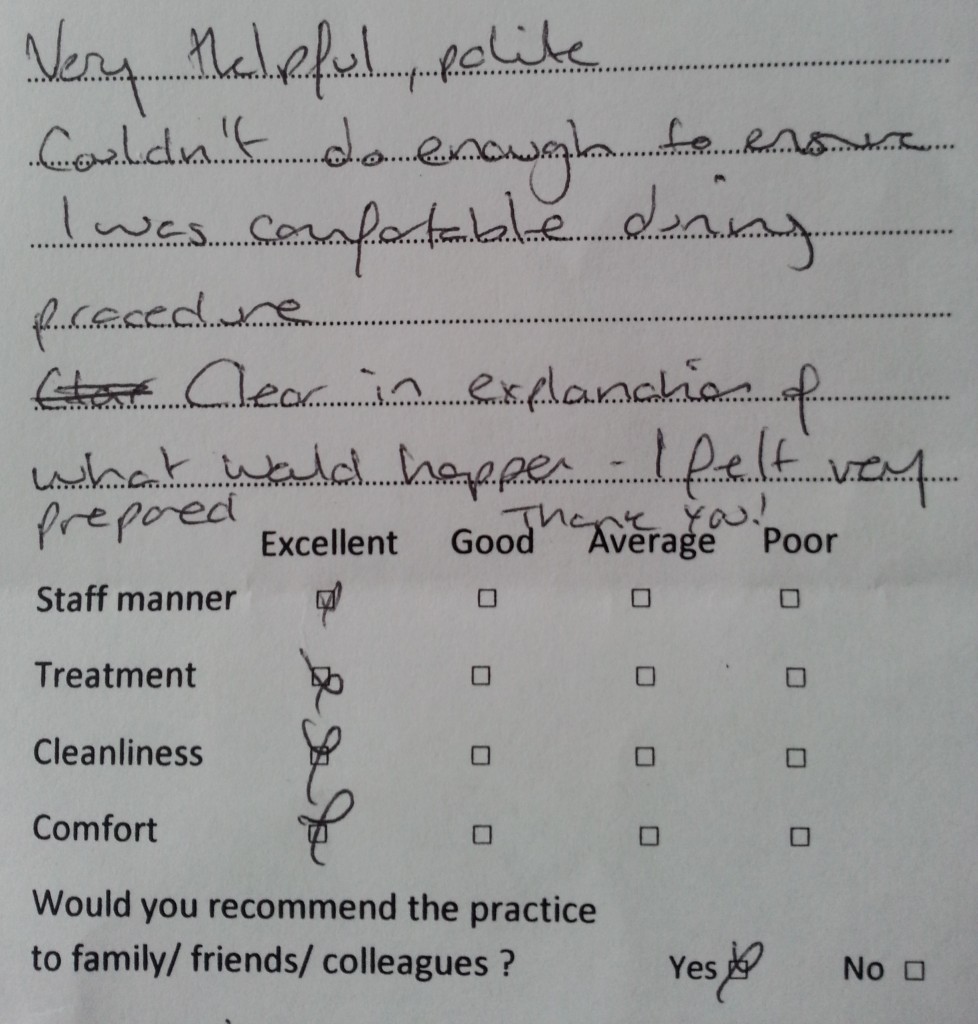 Very Helpful, polite
Couldn't do enough to ensure
I was comfortable during
procedure
Clear in explanation of
what would happen - I felt very
prepared Thank You!
Excellent Good Average Poor
Staff manner
Treatment
Cleanliness
Comfort
Would you recommend the practice
to family/ friends/ colleagues ? Yes No